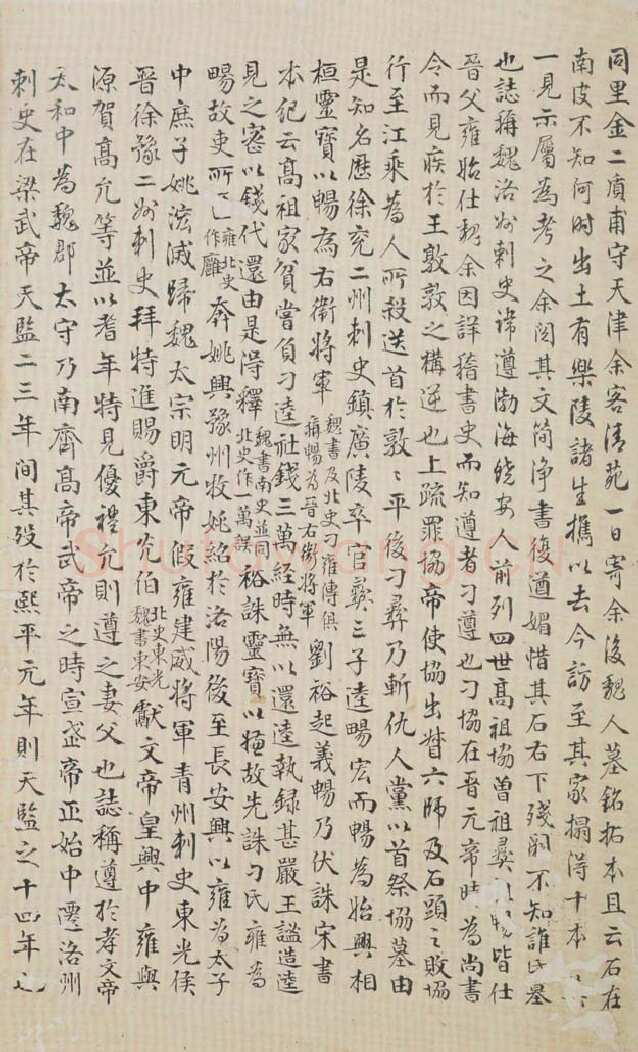 同里金二廣甫守天津余客清苑一日寄余後魏人墓銘拓本且云石在
南皮不知何時出土有樂陵諸生攜以去今訪至其家搨得十本
一見示屬為考之余閱其文簡淨書復遒媚惜其石右下殘闕不知誰氏墓
也誌稱魏洛州刺史諱遵渤海饒安人前列四世高祖協曾祖彝皆仕
晉父雍始仕魏余因詳稽書史而知遵者刁遵也刁協在晉元帝時為尚書
令而見疾於王敦敦之構逆也上疏罪協帝使協出督六師及石頭之敗協
行至江乘為人所殺送首於敦敦平後刁彝乃斬仇人黨以首祭協墓由
是知名歷徐兗二州刺史鎮廣陵卒官彝三子逵暢宏而暢為始興相
桓靈寶以暢為右衛將軍魏書及北史刁雍傳俱稱暢為晉右衛將軍劉裕起義暢乃伏誅宋書
本紀云高祖家貧嘗負刁逵社錢三萬經時無以還逵執錄甚嚴王謐造逵
見之密以錢代還由是得釋魏書南史並同北史作一萬誤裕誅靈寶以嫌故先誅刁氏雍為
暢故吏所匿雍北史作廱奔姚興豫州牧姚紹於洛陽後至長安興以雍為太子
中庶子姚泓滅歸魏太宗明元帝假雍建威將軍青州刺史東光侯
晉徐豫二州刺史拜特進賜爵東光伯北史東光魏書東安獻文帝皇興中雍與
源賀高允等並以耆年特見優禮允則遵之妻父也誌稱遵於孝文帝
太和中為魏郡太守乃南齊高帝武帝之時宣武帝正始中遷洛州
刺史在梁武帝天監二三年間其歿於熙平元年則天監之十四年也